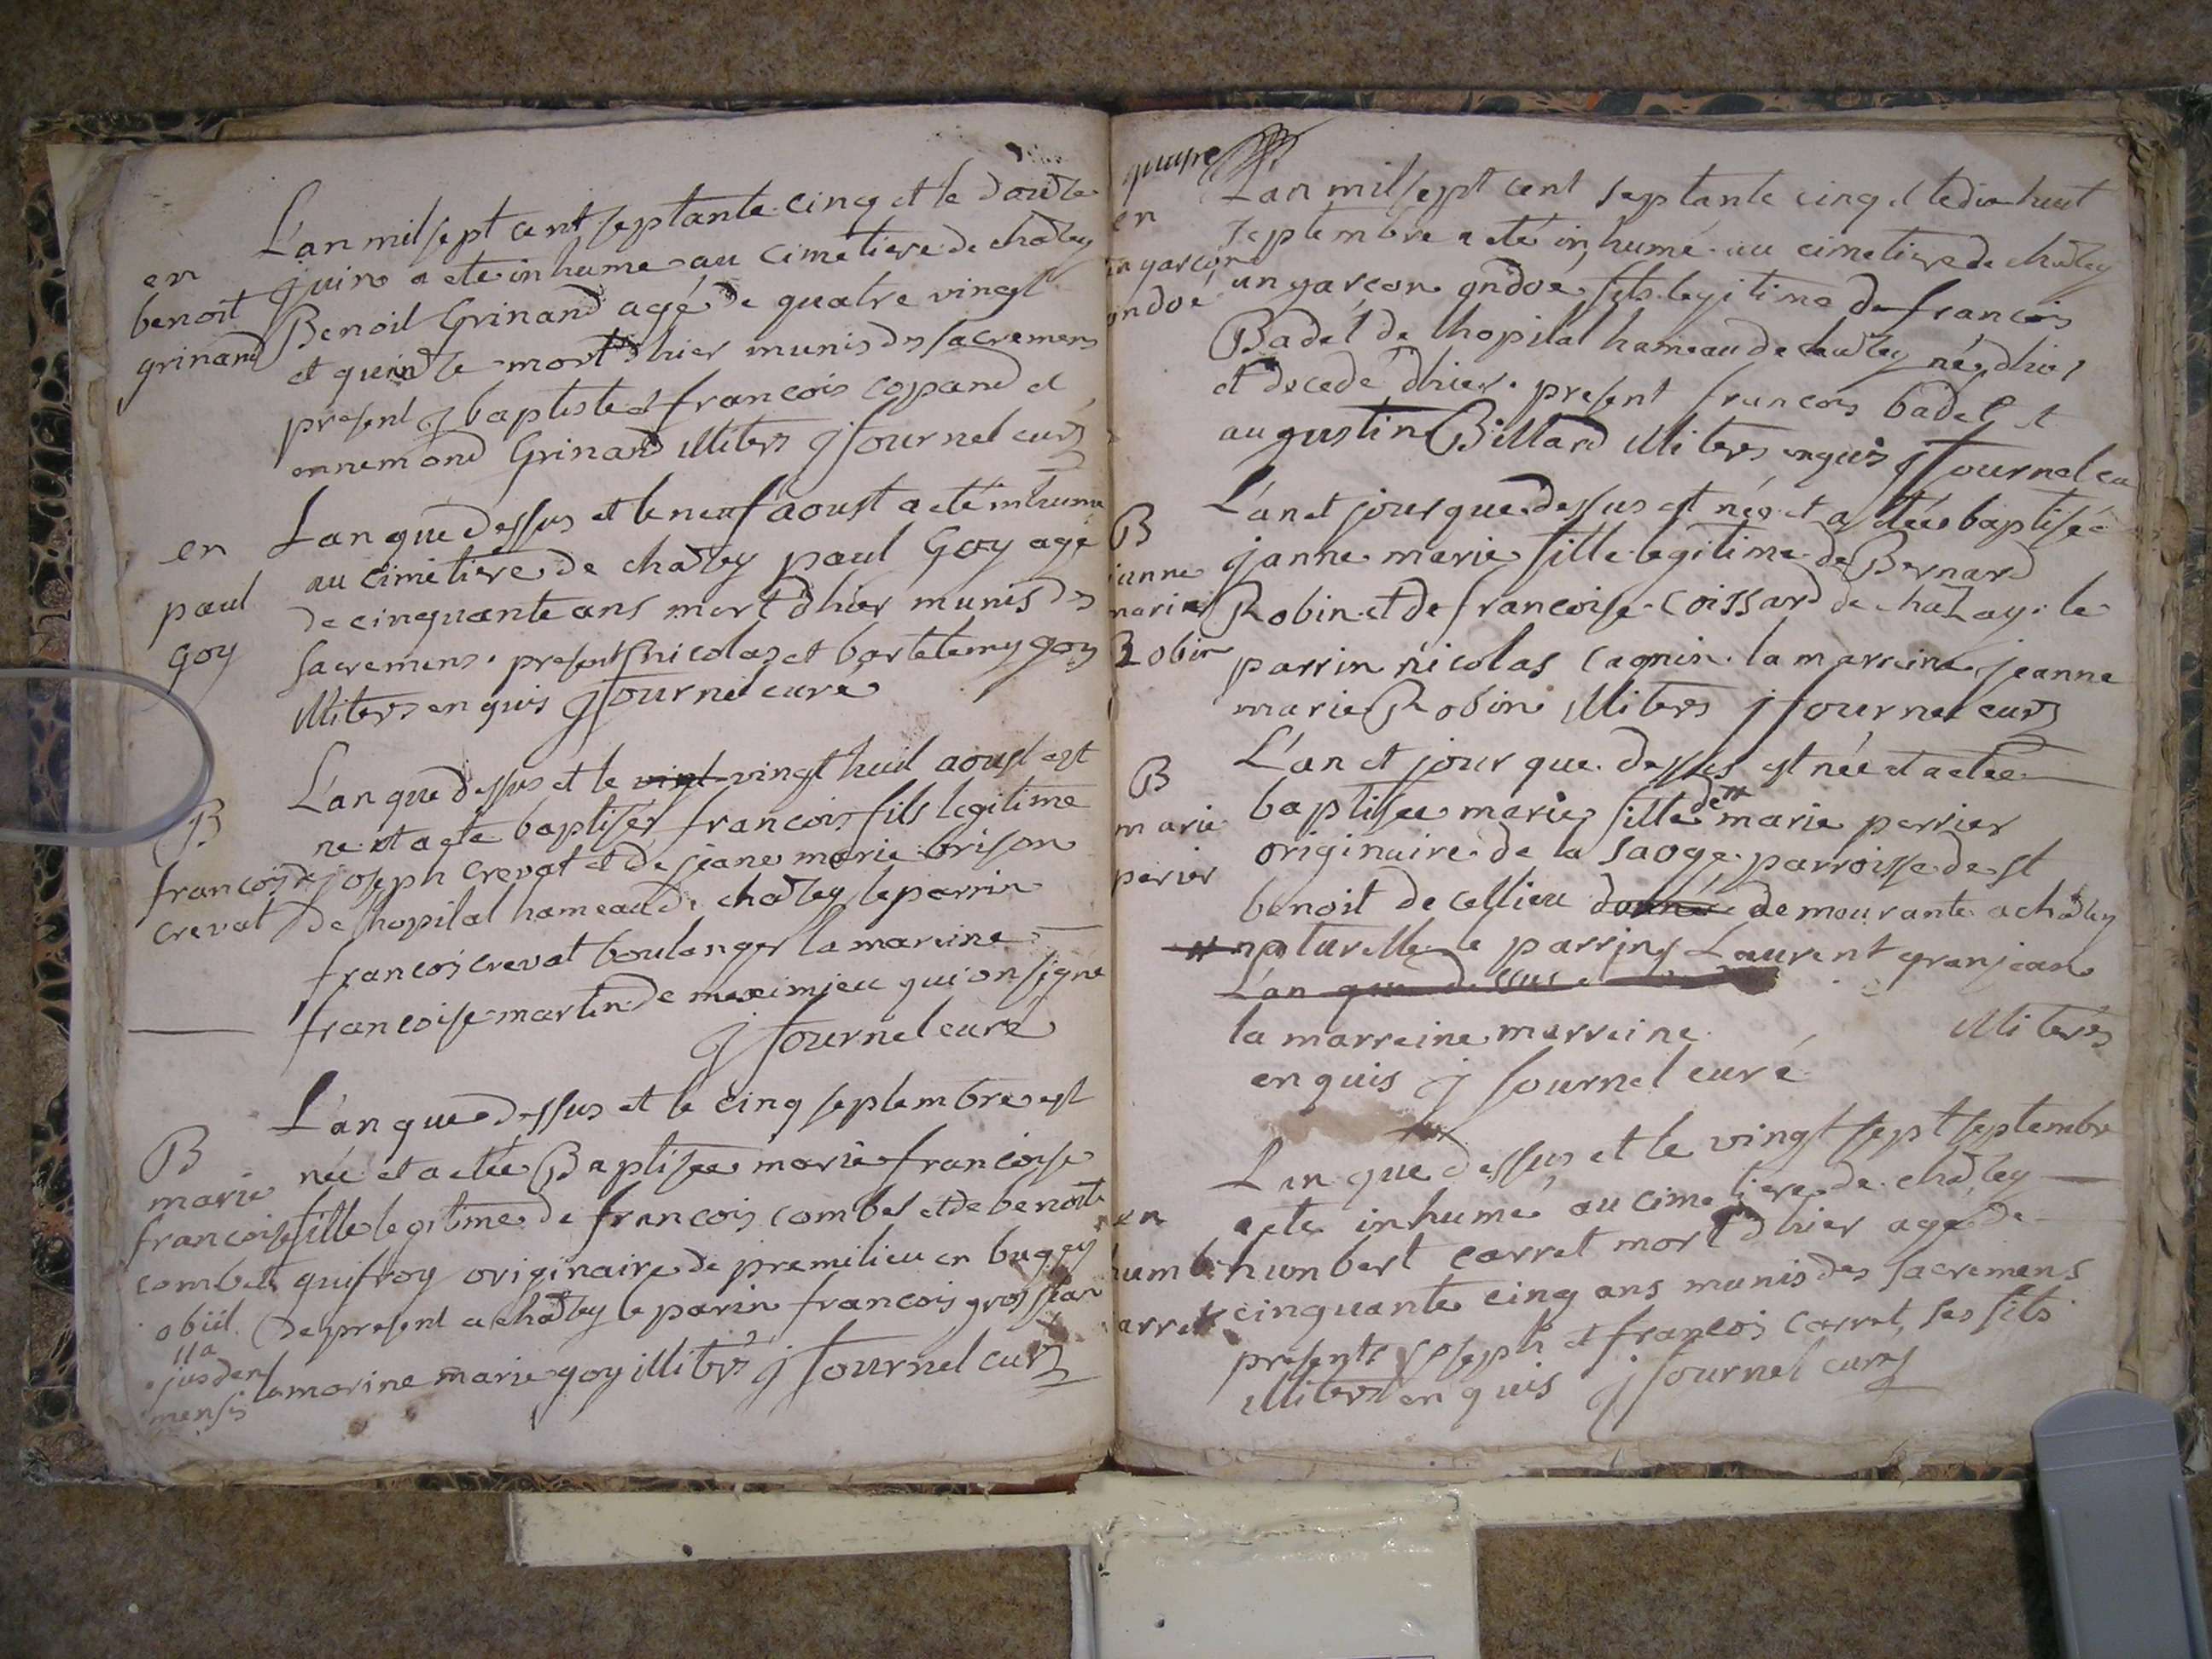 L'an mil sept cent septante cinq et le douze
en
juin a ete inhume au cimetiere de chaz̄ey
benoit
Benoit Grinand agé de quatre vingt
grinand
et quinze mort dhier munis des sacremens
present j baptiste et francois copand et
ennemond Grinand illiters j fournel curé
L'an que dessus et le neuf aoust a eté inhume
en
au cimetiere de chaz̄ey paul Goy agé
paul
de cinquante ans mort dhier munis des
goy
sacremens. present nicolas et bartelemy goy
illiters enquis j fournel curé
L'an que dessus et le vingt huit aoust est
B
né et a ete baptisér francois fils legitime
francois
de joseph crevat et de jeane marie brison
crevat
de lhopital hameau de chaz̄ey le parrin
francois crevat boulanger la mareine
francoise martin de meximieu qui on signe
j fournel curé
L'an que dessus et le cinq septembre est
B
née et a etée Baptisée marie francoise
marie
francoise
fille legitime de francois combet et de benoite
combet
quifroy originaire de premilieu en bugey
obiit
de present a chaz̄ey le parin francois grosjean
11a
ejusdem
mensis
la marine marie goy illiters j fournel curé
L'an mil sept cent septante cinq et le dix huit
en
septembre a eté inhumé au cimetiere de chaz̄ey
un garcon
un garcon ondoé fils legitime de francois
ondoé
Badel de lhopital hameau de chaz̄ey né dhier
et decedé dhier. present francois badel et
augustin Billard illiters enquis j fournel cu
L'an et jour que dessus est née et a etée baptisée
B
janne marie fille legitime de Bernard
janne
marie
Robin et de francoise coissard de chazay. le
Robin
parrin nicolas cagnin. la marreine jeanne
marie Robin illiters j fournel curé
L'an et jour que dessus est née et a etée
B
baptisée marie fille de # marie perrier
marie
originaire de la saoge parroisse de st
perier
benoit de cellieu demeurante a chaz̄ey
# naturelle le parrin Laurent granjean
L'an que dessus
la marreine marreine illiters
enquis j fournel curé
L'an que dessus et le vingt sept septembre
a ete inhumé au cimetiere de chaz̄ey
en
humbert
humbert carret mort dhier agé de
carret
cinquante cinq ans munis des sacremens
presents joseph et francois carret ses fils
illiters enquis j fournel curé